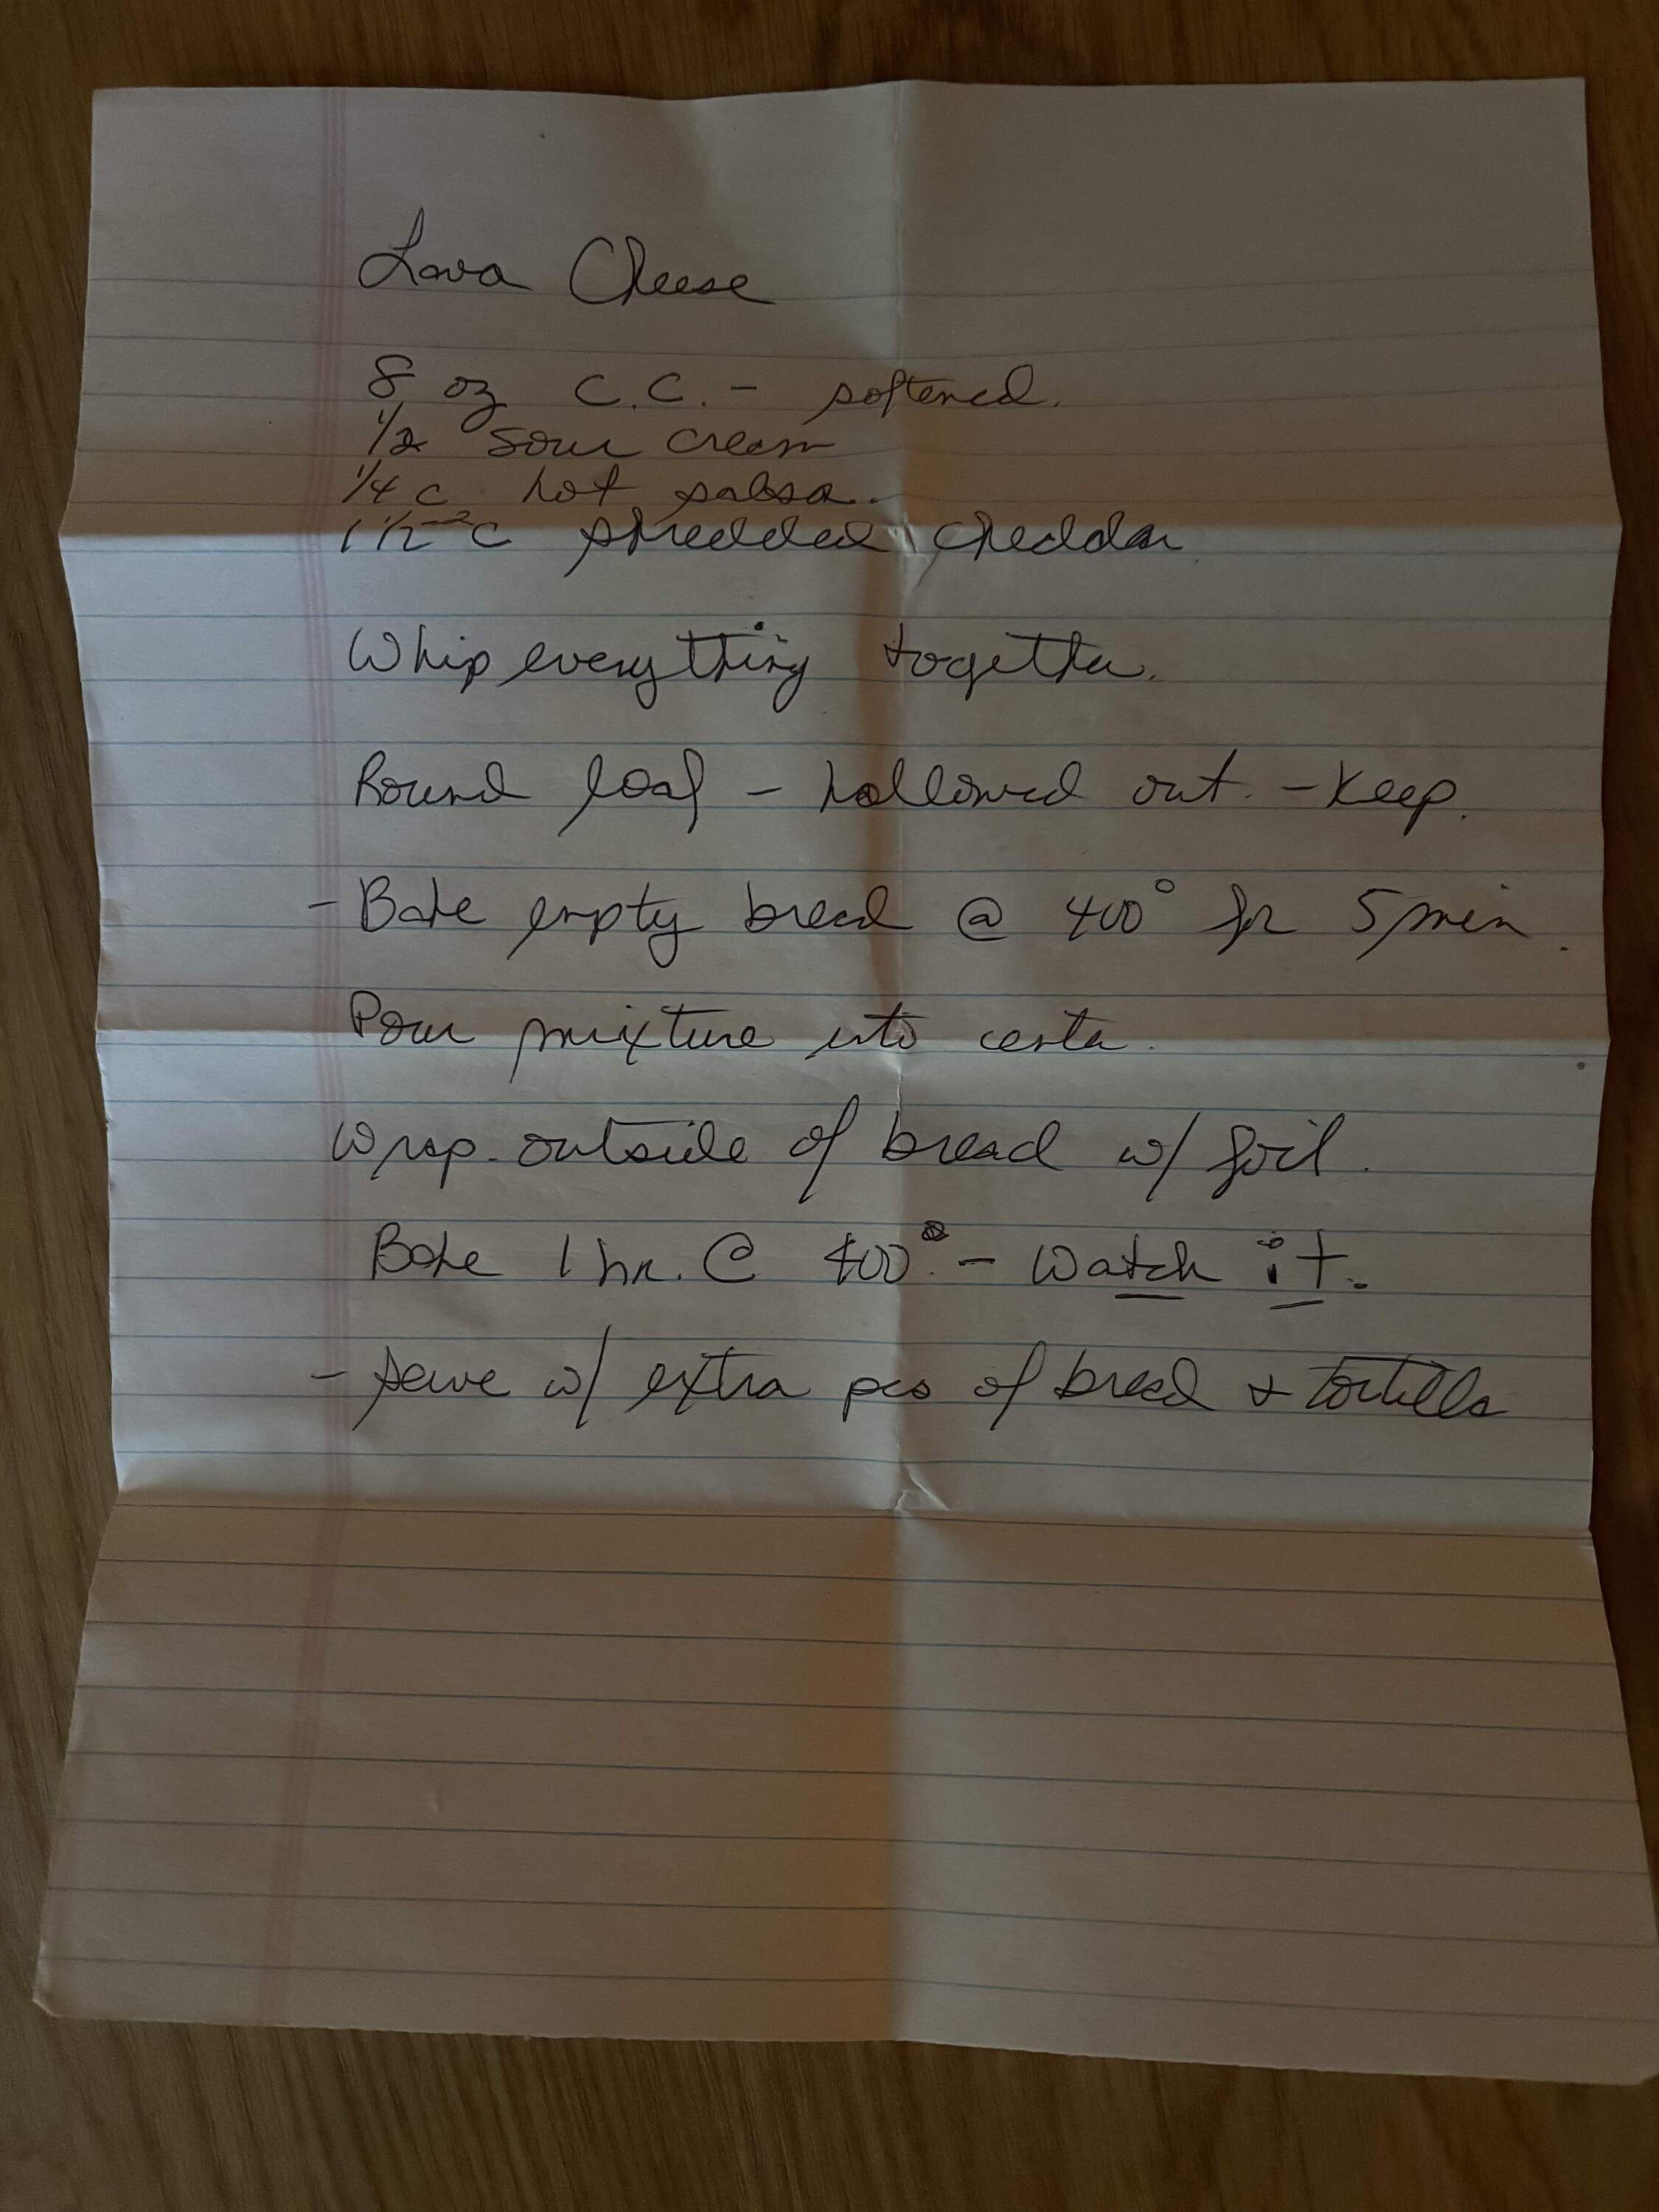 Lava Cheese
8 oz C.C. - softened.
1/2 sour cream
1/4 c hot salsa.
1 1/2-2 C shredded cheddar
Whip everything together.
Round loaf - hollowed out. - Keep.
- Bake empty bread @ 400° for 5 min.
Pour mixture into center.
Wrap outside of bread w/ foil.
Bake 1 hr. @ 400° - Watch it.
- serve w/ extra pcs of bread & tortilla